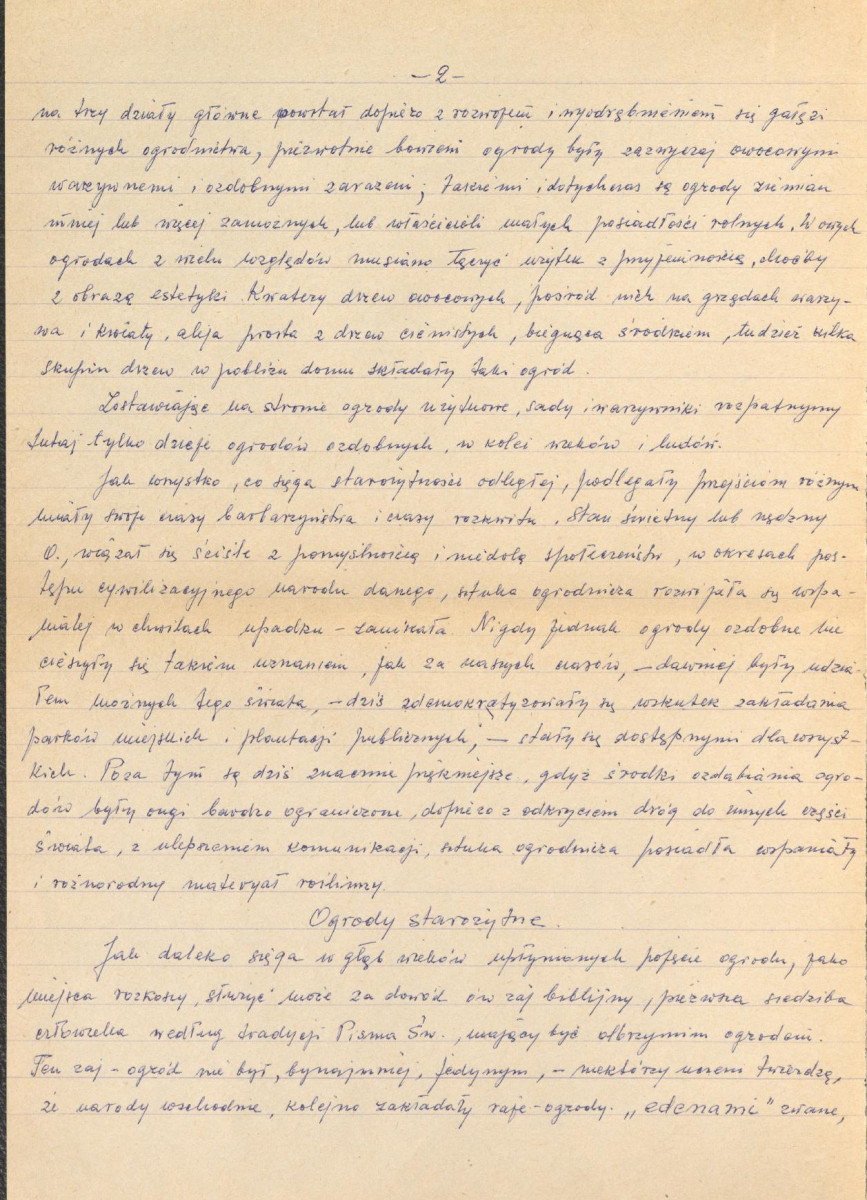 - 2 -
na trzy działy główne powstał dopiéro z rozwojem i wyodrębnieniem się gałęzi
różnych ogrodnictwa, piérwotnie bowiem ogrody były zazwyczaj owocowymi
warzywnemi i ozdobnymi zarazem; takiémi i dotychczas są ogrody ziemian
mniej lub więcej zamożnych, lub właścicieli małych posiadłości rolnych. W owych
ogrodach z wielu względów musiano łączyć użytek z przyjemnością, choćby
z obrazą estetyki. Kwatery drzew owocowych, pośród nich na grzędach warzy-
wa i kwiaty, aleja prosta z drzew cienistych, biegnąca środkiem, tudzież kilka
skupin drzew w pobliżu domu składały taki ogród.
Zostawiając na stronie ogrody użytkowe, sady i warzywniki rozpatrzymy
tutaj tylko dzieje ogrodów ozdobnych, w kolei wieków i ludów.
Jak wszystko, co sięga starożytności odległej, podlegały przejściom różnym
miały swoje czasy barbarzyństwa i czasy rozkwitu. Stan świetny lub nędzny
O., wiązał się ściśle z pomyślnością i niedolą społeczeństw, w okresach pos-
tępu cywilizacyjnego narodu danego, sztuka ogrodnicza rozwijała się wspa-
niałej w chwilach upadku - zanikała. Nigdy jednak ogrody ozdobne nie
cieszyły się takiém uznaniem, jak za naszych czasów, - dawniej były udzia-
łem możnych tego świata, - dziś zdemokratyzowały się wskutek zakładania
parków miejskich i plantacji publicznych, - stały się dostępnymi dla wszyst-
kich. Poza tym są dziś znacznie piękniejsze, gdyż środki ozdabiania ogro-
dów były ongi bardzo ograniczone, dopiéro z odkryciem dróg do innych części
świata, z ulepszeniem komunikacji, sztuka ogrodnicza posiadła wspaniały
i różnorodny materyał roślinny.
Ogrody starożytne.
Jak daleko sięga w głąb wieków upłynionych pojęcie ogrodu, jako
miejsca rozkoszy, służyć może za dowód ów raj biblijny, piérwsza siedziba
człowieka według tradycji Pisma Św., mający być olbrzymim ogrodem.
Ten raj - ogród nie był, bynajmniej, jedynym, - niektórzy uczeni twierdzą,
że narody wschodnie, kolejno zakładały raje-ogrody. „edenami" zwane,